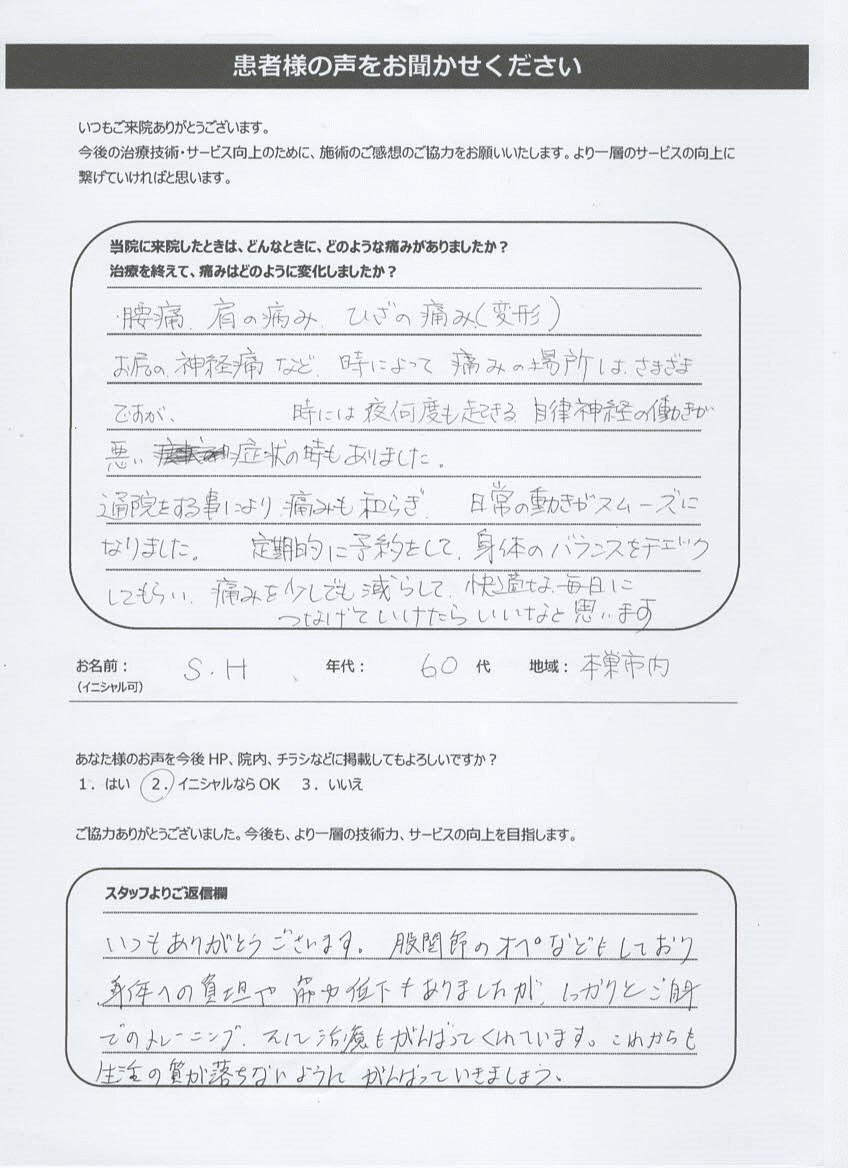 患者様の声をお聞かせください
いつもご来院ありがとうございます。
今後の治療技術・サービス向上のために、施術のご感想のご協力をお願いいたします。より一層のサービスの向上に
繋げていければと思います。
当院に来院したときは、どんなときに、どのような痛みがありましたか?
治療を終えて、痛みはどのように変化しましたか?
・腰痛、肩の痛み、ひざの痛み(変形)
お尻の神経痛など、時によって痛みの場所は、さまざま
ですが、 時には夜何度も起きる、自律神経の働きが
悪い 症状の時もありました。
通院をする事により、痛みも和らぎ、 日常の動きがスムーズに
なりました。 定期的に予約をして、身体のバランスをチェック
してもらい、痛みを少しでも減らして、快適な毎日に
つなげていけたらいいなと思います
お名前: S.H 年代: 60代 地域: 本巣市内
(イニシャル可)
あなた様のお声を今後HP、院内、チラシなどに掲載してもよろしいですか?
1.はい 2.イニシャルならOK 3.いいえ
ご協力ありがとうございました。今後も、より一層の技術力、サービスの向上を目指します。
スタッフよりご返信欄
いつもありがとうございます。股関節のオペなどもしており
身体への負担や筋力低下もありましたが、しっかりとご自身
でのトレーニング、そして治療もがんばってくれています。これからも
生活の質が落ちないようにがんばっていきましょう。